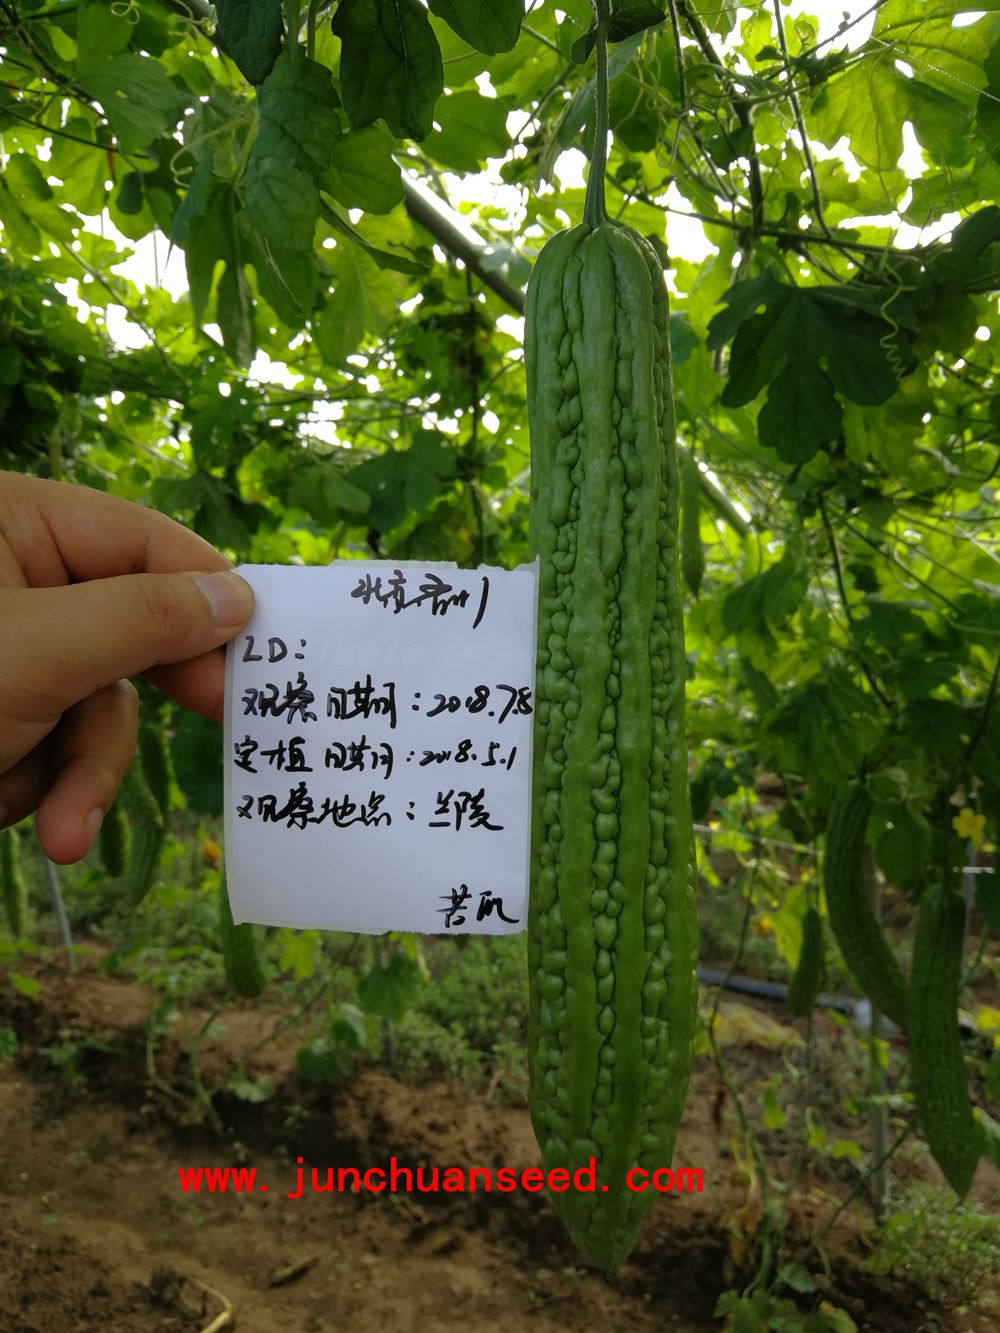 LD:
观察日期:2018.7.8
定植日期:2018.5.1
观察地点:兰陵
www.junchuanseed.com